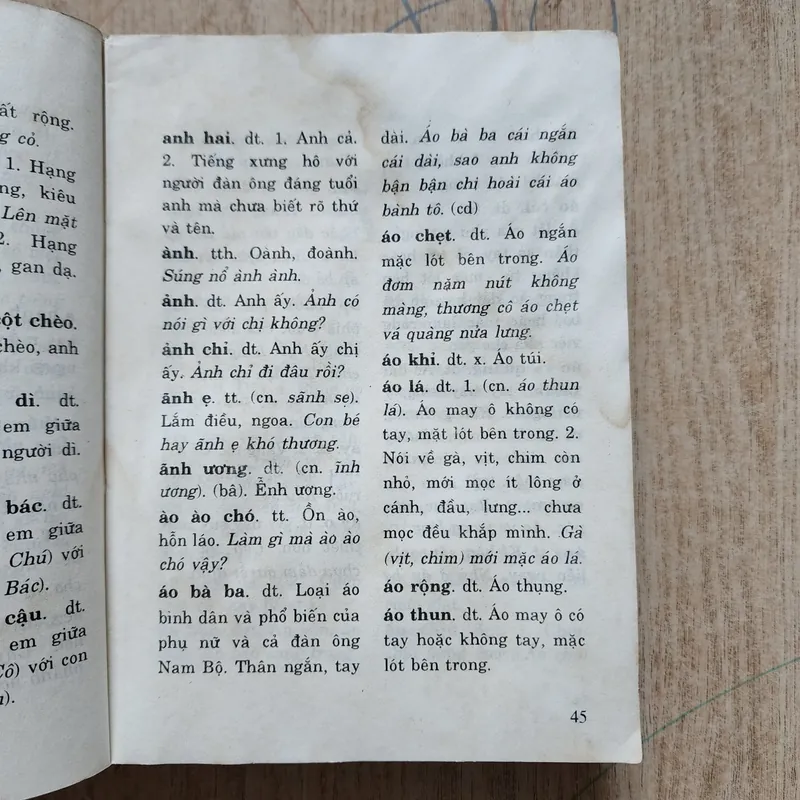 ất rộng.
g cỏ.
1. Hạng
ng, kiêu
Lên mặt
2. Hạng
, gan dạ.
ột chèo.
chèo, anh
dì. dt.
em giữa
người dì.
bác. dt.
em giữa
Chú) với
Bác).
cậu. dt.
em giữa
Cô) với con
).
anh hai. dt. 1. Anh cả.
2. Tiếng xưng hô với
người đàn ông đáng tuổi
anh mà chưa biết rõ thứ
và tên.
ành. tth. Oành, đoành.
Súng nổ ành ành.
ảnh. dt. Anh ấy. Ảnh có
nói gì với chị không?
ảnh chỉ. dt. Anh ấy chị
ấy. Ảnh chỉ đi đâu rồi?
ãnh ẹ. tt. (cn. sãnh sẹ).
Lắm điều, ngoa. Con bé
hay ãnh ẹ khó thương.
ãnh ương. dt. (cn. ĩnh
ương). (bâ). Ễnh ương.
ào ào chó. tt. Ồn ào,
hỗn láo. Làm gì mà ào ào
chó vậy?
áo bà ba. dt. Loại áo
bình dân và phổ biến của
phụ nữ và cả đàn ông
Nam Bộ. Thân ngắn, tay
dài. Áo bà ba cái ngắn
cái dài, sao anh không
bận bận chi hoài cái áo
bành tô. (cd)
áo chẹt. dt. Áo ngắn
mặc lót bên trong. Áo
đơm năm nút không
màng, thương cô áo chẹt
vá quàng nửa lưng.
áo khỉ. dt. x. Áo túi.
áo lá. dt. 1. (cn. áo thun
lá). Áo may ô không có
tay, mặt lót bên trong. 2.
Nói về gà, vịt, chim còn
nhỏ, mới mọc ít lông ở
cánh, đầu, lưng... chưa
mọc đều khắp mình. Gà
(vịt, chim) mới mặc áo lá.
áo rộng. dt. Áo thụng.
áo thun. dt. Áo may ô có
tay hoặc không tay, mặc
lót bên trong.
45